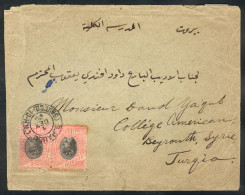 بيروت المدرسه الكليه
لجناب الاديب البارع داود افندي يعقوب المحترم
Monsieur Daud Yaqub
Collège American
Beyrouth, Syrie
Turqia